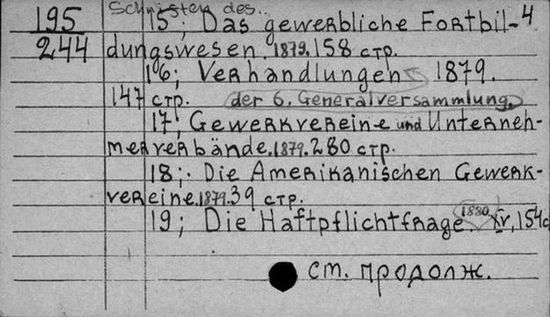 Schriften des..
195 15; Das gewerbliche Fortbil- 4
244 dungswesen. 1879. 158 стр.
16; Verhandlungen 1879.
147 стр. der 6. Generalversammlung.
17; Gewerkvereine und Unterneh-
merverbände. 1879. 280 стр.
18; Die Amerikanischen Gewerk-
vereine. 1879. 39 стр.
19; Die Haftpflichtfrage 1880 XV, 154 с
см. продолж.